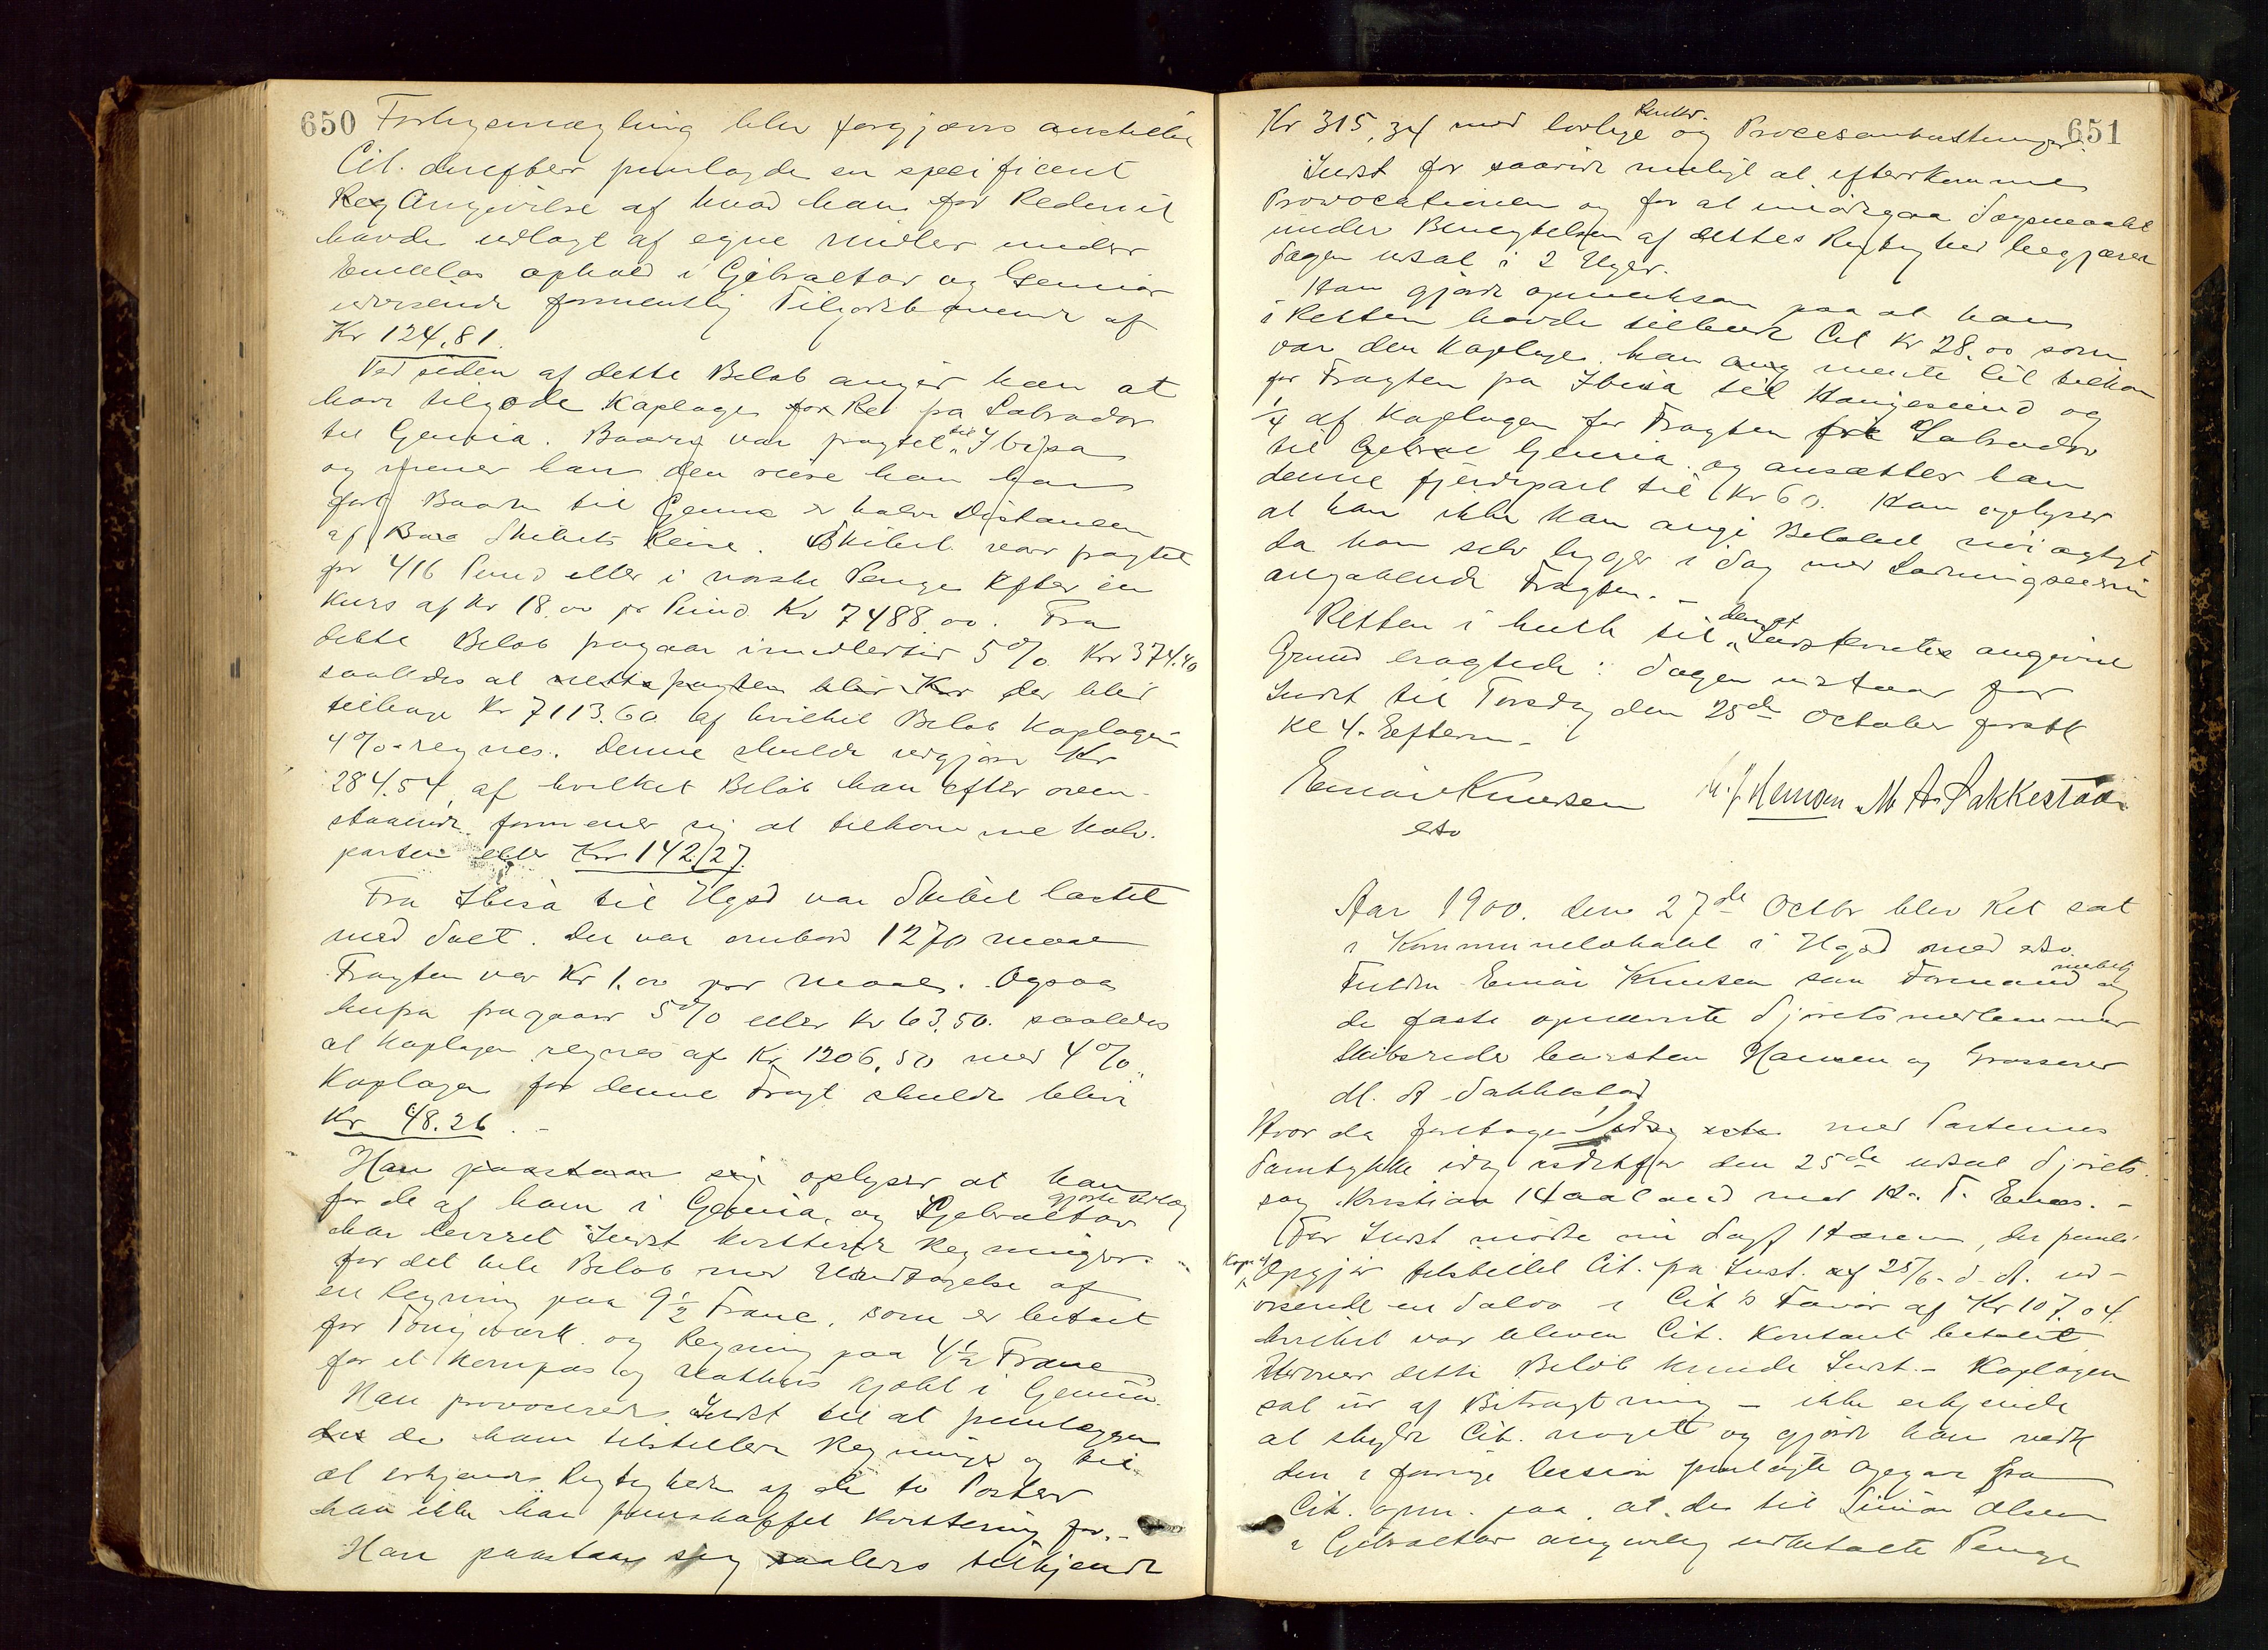 650 Forligsmægling blev forgjæves anstillet
Cit. derefter fremlagde en specificeret
Reg Angivelse af hvad han for Rederiet
havde udlagt af egne midler under
ophold i Gibraltar og Genua
udvisende formentlig Tilgodehavende af
Kr 124.81.
Ved siden af dette Beløb angir han at
have tilgode Kaplagen for Rei fra Labrador
til Genua. Baaren var fragtet til Ibisa
og mener han den reise han har
ført Baaden til Genua er halve Distancen
af Bare Skibets Reise. Skibet var fragtet
for 416 Pund eller i norske Penge efter en
Kurs af Kr 18.00 pr Pund Kr 7488.00. Fra
dette Beløb fragaar imidlertid 5% Kr 374.40
saaledes at nettofragten blir Kr der blir
tilbage Kr 7113.60 af hvilket Beløb Kaplagen
4% regnes. Denne skulde udgjøre Kr
284.54, af hvilket Beløb han efter oven-
staaende formener sig at tilkomme halv-
parten eller Kr 142.27
Fra Ibisa til Hgsd var Skibet lastet
med Salt. Der var ombord 1270 maal
Fragten var Kr 1.00 per maal. Ogsaa
herfra fragaar 5% eller Kr 63.50. saaledes
at Kaplagen regnes af Kr 1206.50 med 4%.
Kaplagen for denne Fragt skulde blive
Kr 48.26.-
Han paastaar sig oplyser at han
for de af ham i Genua og Gibraltar gjorte Udlæg
har leveret Indst kvitterede Regninger
for det hele Beløb med Undtagelse af
en Regning paa 9½ Franc, som er betalt
for Tougværk og Regning paa 4½ Franc
for et Kompas og kjøbt i Genua.
Han provoserer Indst til at fremlægge
des de ham tilstillede Regninger og til
at erkjende Rigtigheden af de to Poster
han ikke har fremskaffet Kvittering for.-
Han paastaar sig saaledes tilkjendt
651
Kr 315,34 med lovlige Renter og Procesomkostninger.
Indst for saavidt muligt at efterkomme
Provocationen og for at imødegaa Søgsmaalet
under Benegtelsen af dettes Rigtighed begjærer
Sagen udsat i 2 Uger.
Han gjorde opmerksom paa at han
i Retten havde tilbudt Cit Kr 28.00 som
var den Kaplage han ang mente Cit tilkom
for Fragten fra Ibisa til Haugesund og
¼ af Kaplagen for Fragten fra Labrador
til Gebrae Genua og ansætter han
denne fjerdepart til Kr 60. Han oplyser
at han ikke kan angi Beløbet nøiagtigt
da han selv ligger i dag med Ladningseierne
angaaende Fragten.-
Retten i henh til den af Indstevnte angivne
Grund eragtede: Sagen udstaar for
Indst til Torsdag den 25de October førstk
Kl 4. Efterm.-
Einar Knudsen M. J. Hansen M A Sakkestad
cto
Aar 1900. den 27de Octbr blev Ret sat
i Kommunelokalet i Hgsd med cto.
Fuldm Einar Knudsen som Formand og
de faste opnævnte Sjøretsmedlemmer
Skibsreder Hansen og Grosserer
M. A Sakkestad
Hvor da foretoges med Parternes
Samtykke idag istedetfor den 25de udsat Sjørets-
sag Kristian Haaland mod K. T. Enes.-
For Indst mødte nu Sagf Haren, der freml
Opgjør tilstillet Cit. fra Indst. af 25/6- d. A. ud-
visende en Saldo i Cit's Favør af Kr 107.04.
hvilket var bleven Cit. kontant betalt
Udover dette Beløb kunde Indst- Kaplagen
sat ud af Betragtning - ikke erkjende
at skylde Cit. noget og gjorde han vedk
den i forrige Session fremlagte Opgave fra
Cit. opm. paa at de til Simon Olsen
i Gibraltar angivelig udbetalte Penge